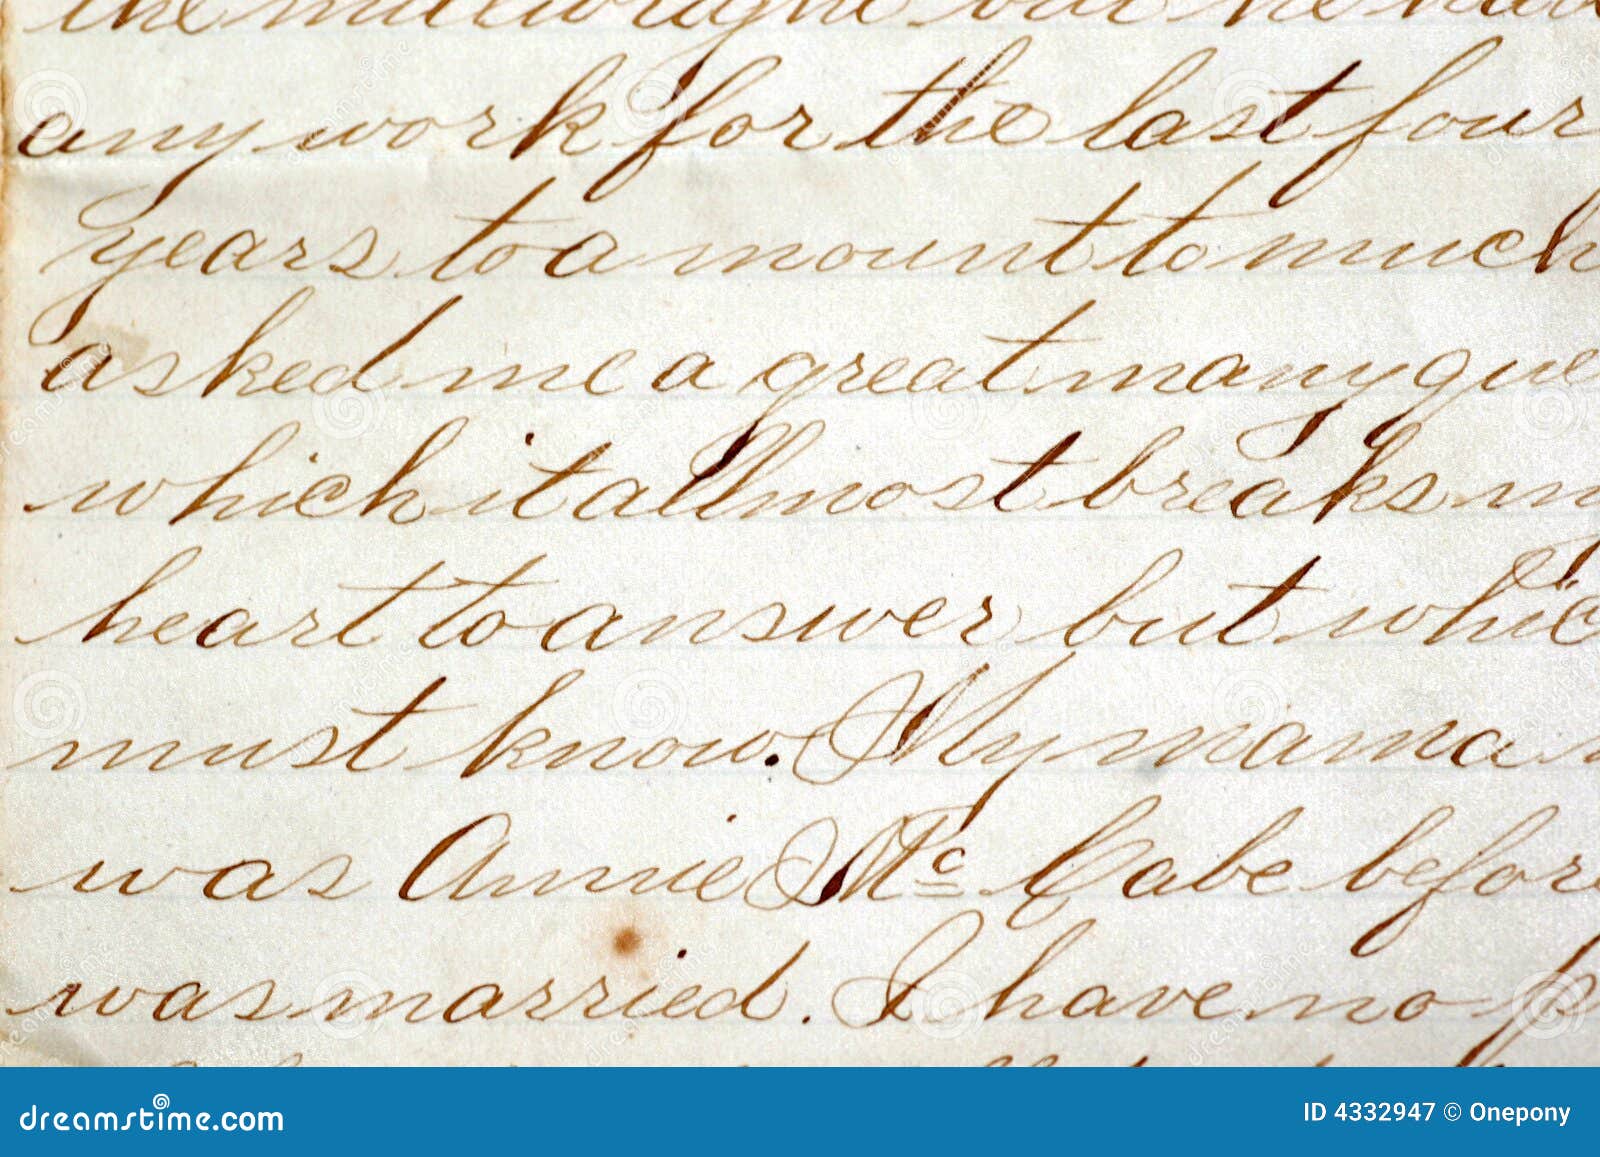 any work for the last four
years to a mount to much
asked me a great many que
which it allmost breaks m
heart to answer but whic
must know. My mama
was Annie Mc Cabe befor
was married. I have no
dreamstime.com
ID 4332947 © Onepony